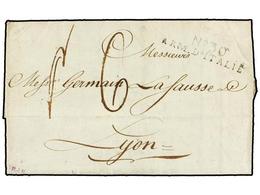 Nº 20
ARM. D'ITALIE
Messieurs
6
Mess Germain La fausse &
Lyon